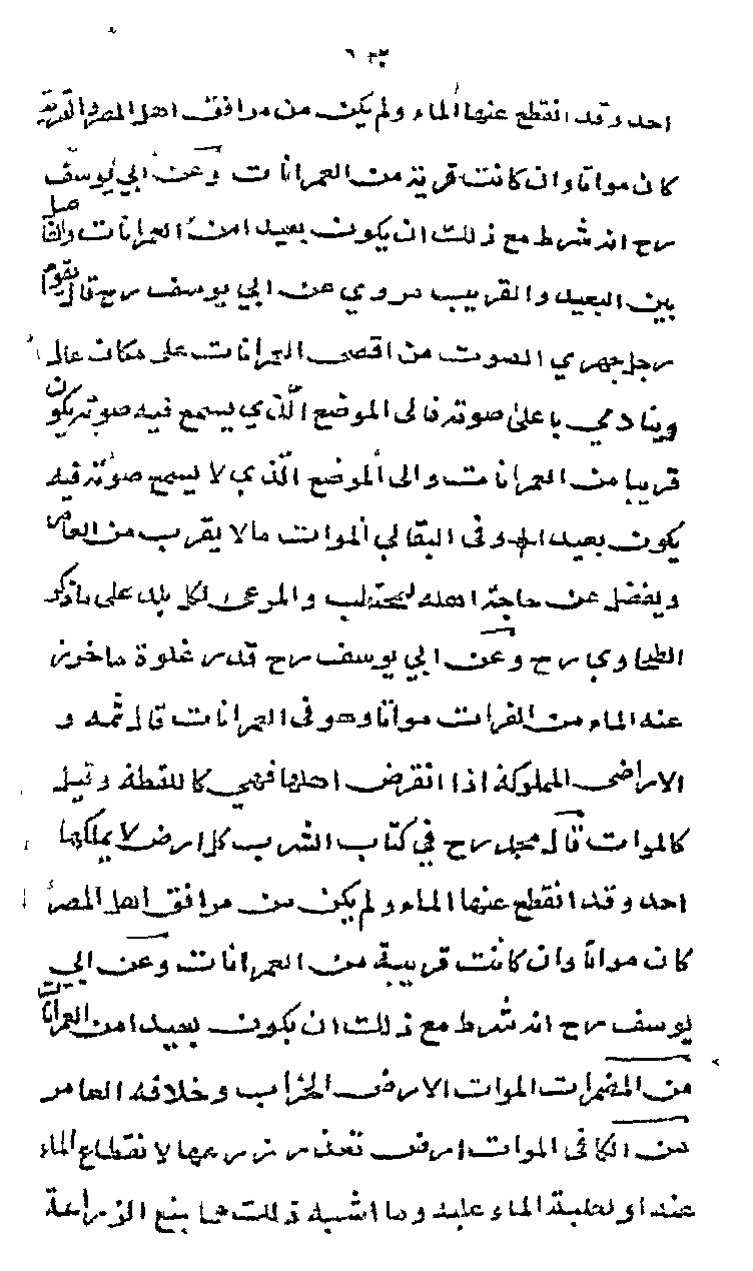 ٦٣٢
احد وقد انقطع عنها الماء ولم يكن من مرافق اهل المصر والقرية
كان مواتا وان كانت قريبة من العمرانات وعن ابي يوسف
رح انه شرط مع ذلك ان يكون بعيدا من العمرانات والفاصل
بين البعيد والقريب مروي عن ابي يوسف رح قال يقوم
رجل جهري الصوت من اقصى العمرانات على مكان عال
وينادي با على صوته فالى الموضع الذي يسمع فيه صوته يكون
قريبا من العمرانات والى الموضع الذي لا يسمع صوته فيه
يكون بعيدا وفى البقالي الموات مالا يقرب من العامر
ويفضل عن حاجة اهله لمحتطب والمرعى لكل بلد على ماذكر
الطحاوي رح وعن ابي يوسف رح قدر غلوة ماخوز
عنه الماء من الفرات مواتا وهو فى العمرانات قال ثمه و
الاراضى المملوكة اذا انقرض اهلها فهي كاللقطة وقيل
كالموات قال محمد رح في كتاب الشرب كل ارض لا يملكها
احد وقد انقطع عنها الماء ولم يكن من مرافق اهل المصر
كان مواتا وان كانت قريبة من العمرانات وعن ابي
يوسف رح انه شرط مع ذلك ان يكون بعيدا من العمرانات
من المضمرات الموات الارض الخراب وخلافه العامر
من الكافى الموات ارض تعذر زرعها لانقطاع الماء
عنه او لغلبة الماء عليه وما اشبه ذلك مما يمنع الزراعة